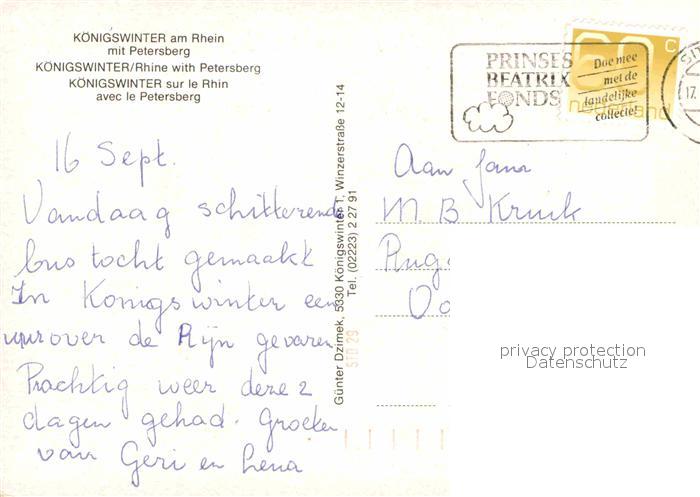 KÖNIGSWINTER am Rhein
mit Petersberg
KÖNIGSWINTER/Rhine with Petersberg
KÖNIGSWINTER sur le Rhin
avec le Petersberg
16 Sept.
Vandaag schitterende
bus tocht gemaakt
In Konigswinter een
uur over de Rijn gevaren
Prachtig weer deze 2
dagen gehad. Groeten
van Geri en Lena
Günter Dzimek, 5330 Königswinter 1, Winzerstraße 12-14
Tel. (02223) 2 27 91
PRINSES
BEATRIX
FONDS
Doe mee
met de
landelijke
collecte!
60 c
nederland
17.
Aan
M. B. Kruik
privacy protection
Datenschutz